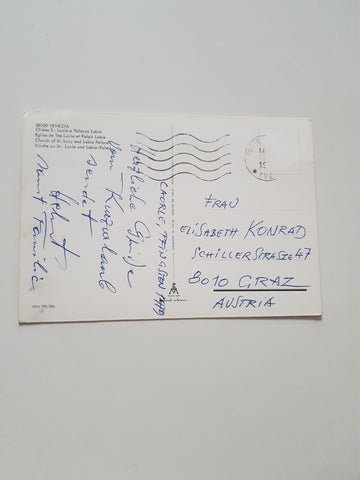 30100 VENEZIA
Chiesa S. Lucia e Palazzo Labia
Eglise de Ste. Lucia et Palais Labia
Church of St. Lucy and Labia Palace
Kirche zu St. Lucia und Labia-Palast
CAORLE, PFINGSTEN 1979
Herzliche Grüße
vom Kurzurlaub
sendet
Helmut
samt Familie
FRAU
ELISABETH KONRAD
SCHILLERSTRASZE 47
8010 GRAZ
AUSTRIA